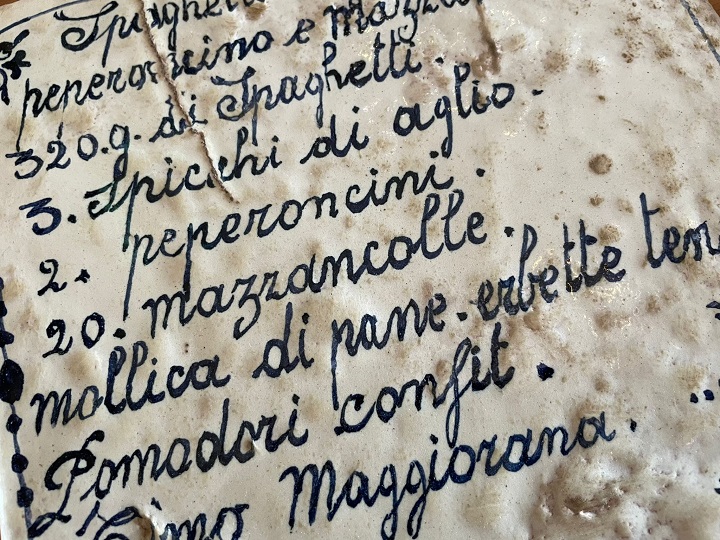 Spaghetti
peperoncino e mazzan
320.g. di Spaghetti.
3. Spicchi di aglio.
2. peperoncini.
20. mazzancolle.
mollica di pane. erbette ten
Pomodori confit.
Timo Maggiorana.